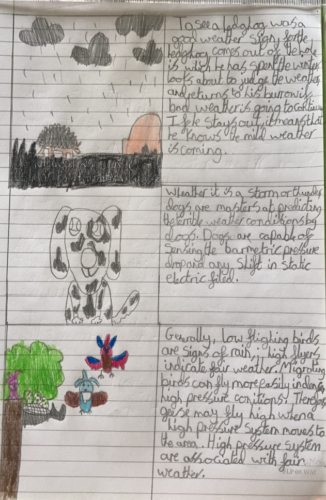 To see a hedgehog was a
good weather sign, for the
hedgehog comes out of the hole
is wich he has spent the winter
loofs about to judge the weather
and returns to his burrow is
bad weather is going to continue
If he stays out, it means that
he knows the mild weather
is coming.
Wheather it is a storm or thunder
dogs are masters at predicting
the terrily weather conditions by
dogs. Dogs are capable of
sensing the barmetric pressure
drop and any shift in static
electric filed.
Genrally, low flighing birds
are signs of rain, high flyers
indicate fair weather. Migrating
birds can fly more easily inding
high pressure conitions. Therefore
geese may fly high when a
high pressure system moves to
the area. High pressure system
are associated with fair
weather.